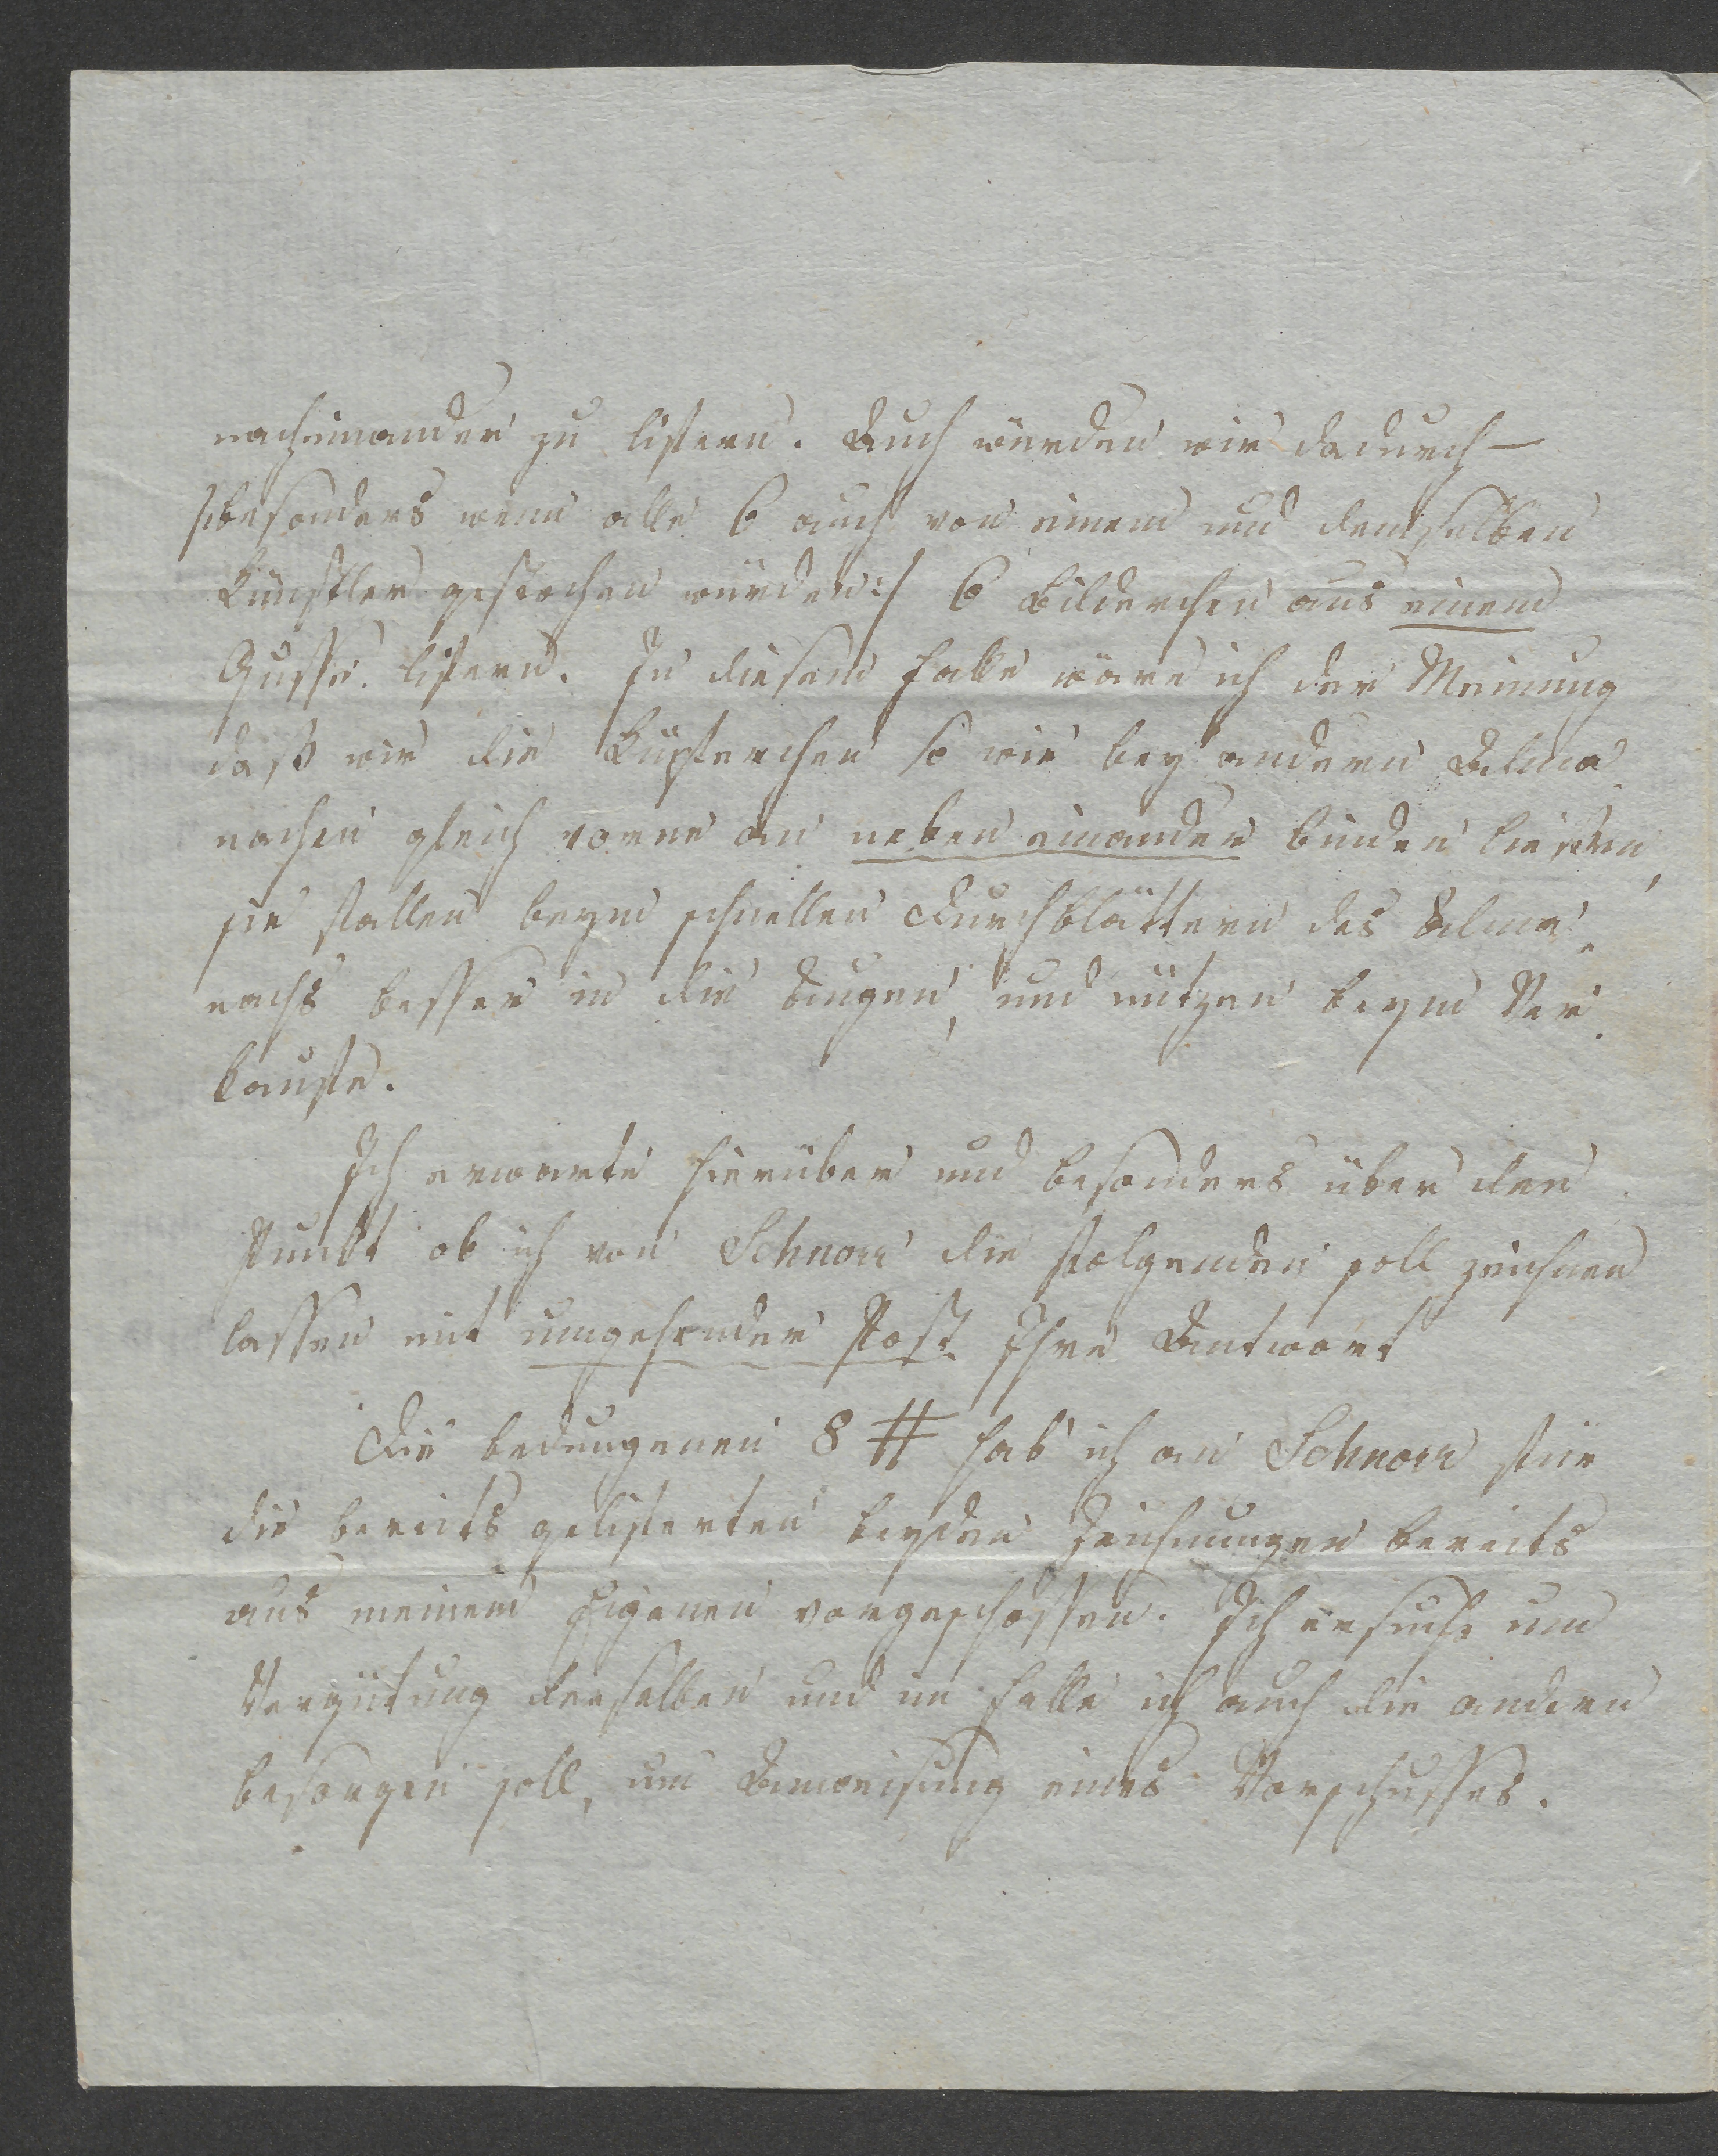 nacheinander zu liefern. Auch würden wir dadurch –
/:besonders wenn alle 6 auch von einem und demselben
Künstler gestochen würden:/ 6 Bilderchen aus einem
Gusse liefern. In diesem Falle wäre ich der Meinung
daß wir die Kupferchen so wie bey andern Alma-
nachen gleich vorne an neben einander binden liessen,
sie fallen beym schnellen Durchblättern des Alma-
nachs besser in die Augen, und nützen beym Ver-
kaufe.
Ich erwarte hierüber und besonders über den
Punkt ob ich von Schnorr die folgenden soll zeichnen
lassen mit umgehender Post Ihre Antwort
Die bedungenen 8 # hab ich an Schnorr für
die bereits gelieferten beyden Zeichnungen bereits
aus meinem Eigenen vorgeschossen. Ich ersuche um
Vergütung derselben und im Falle ich auch die andern
besorgen soll, um Anweisung eines Vorschusses.